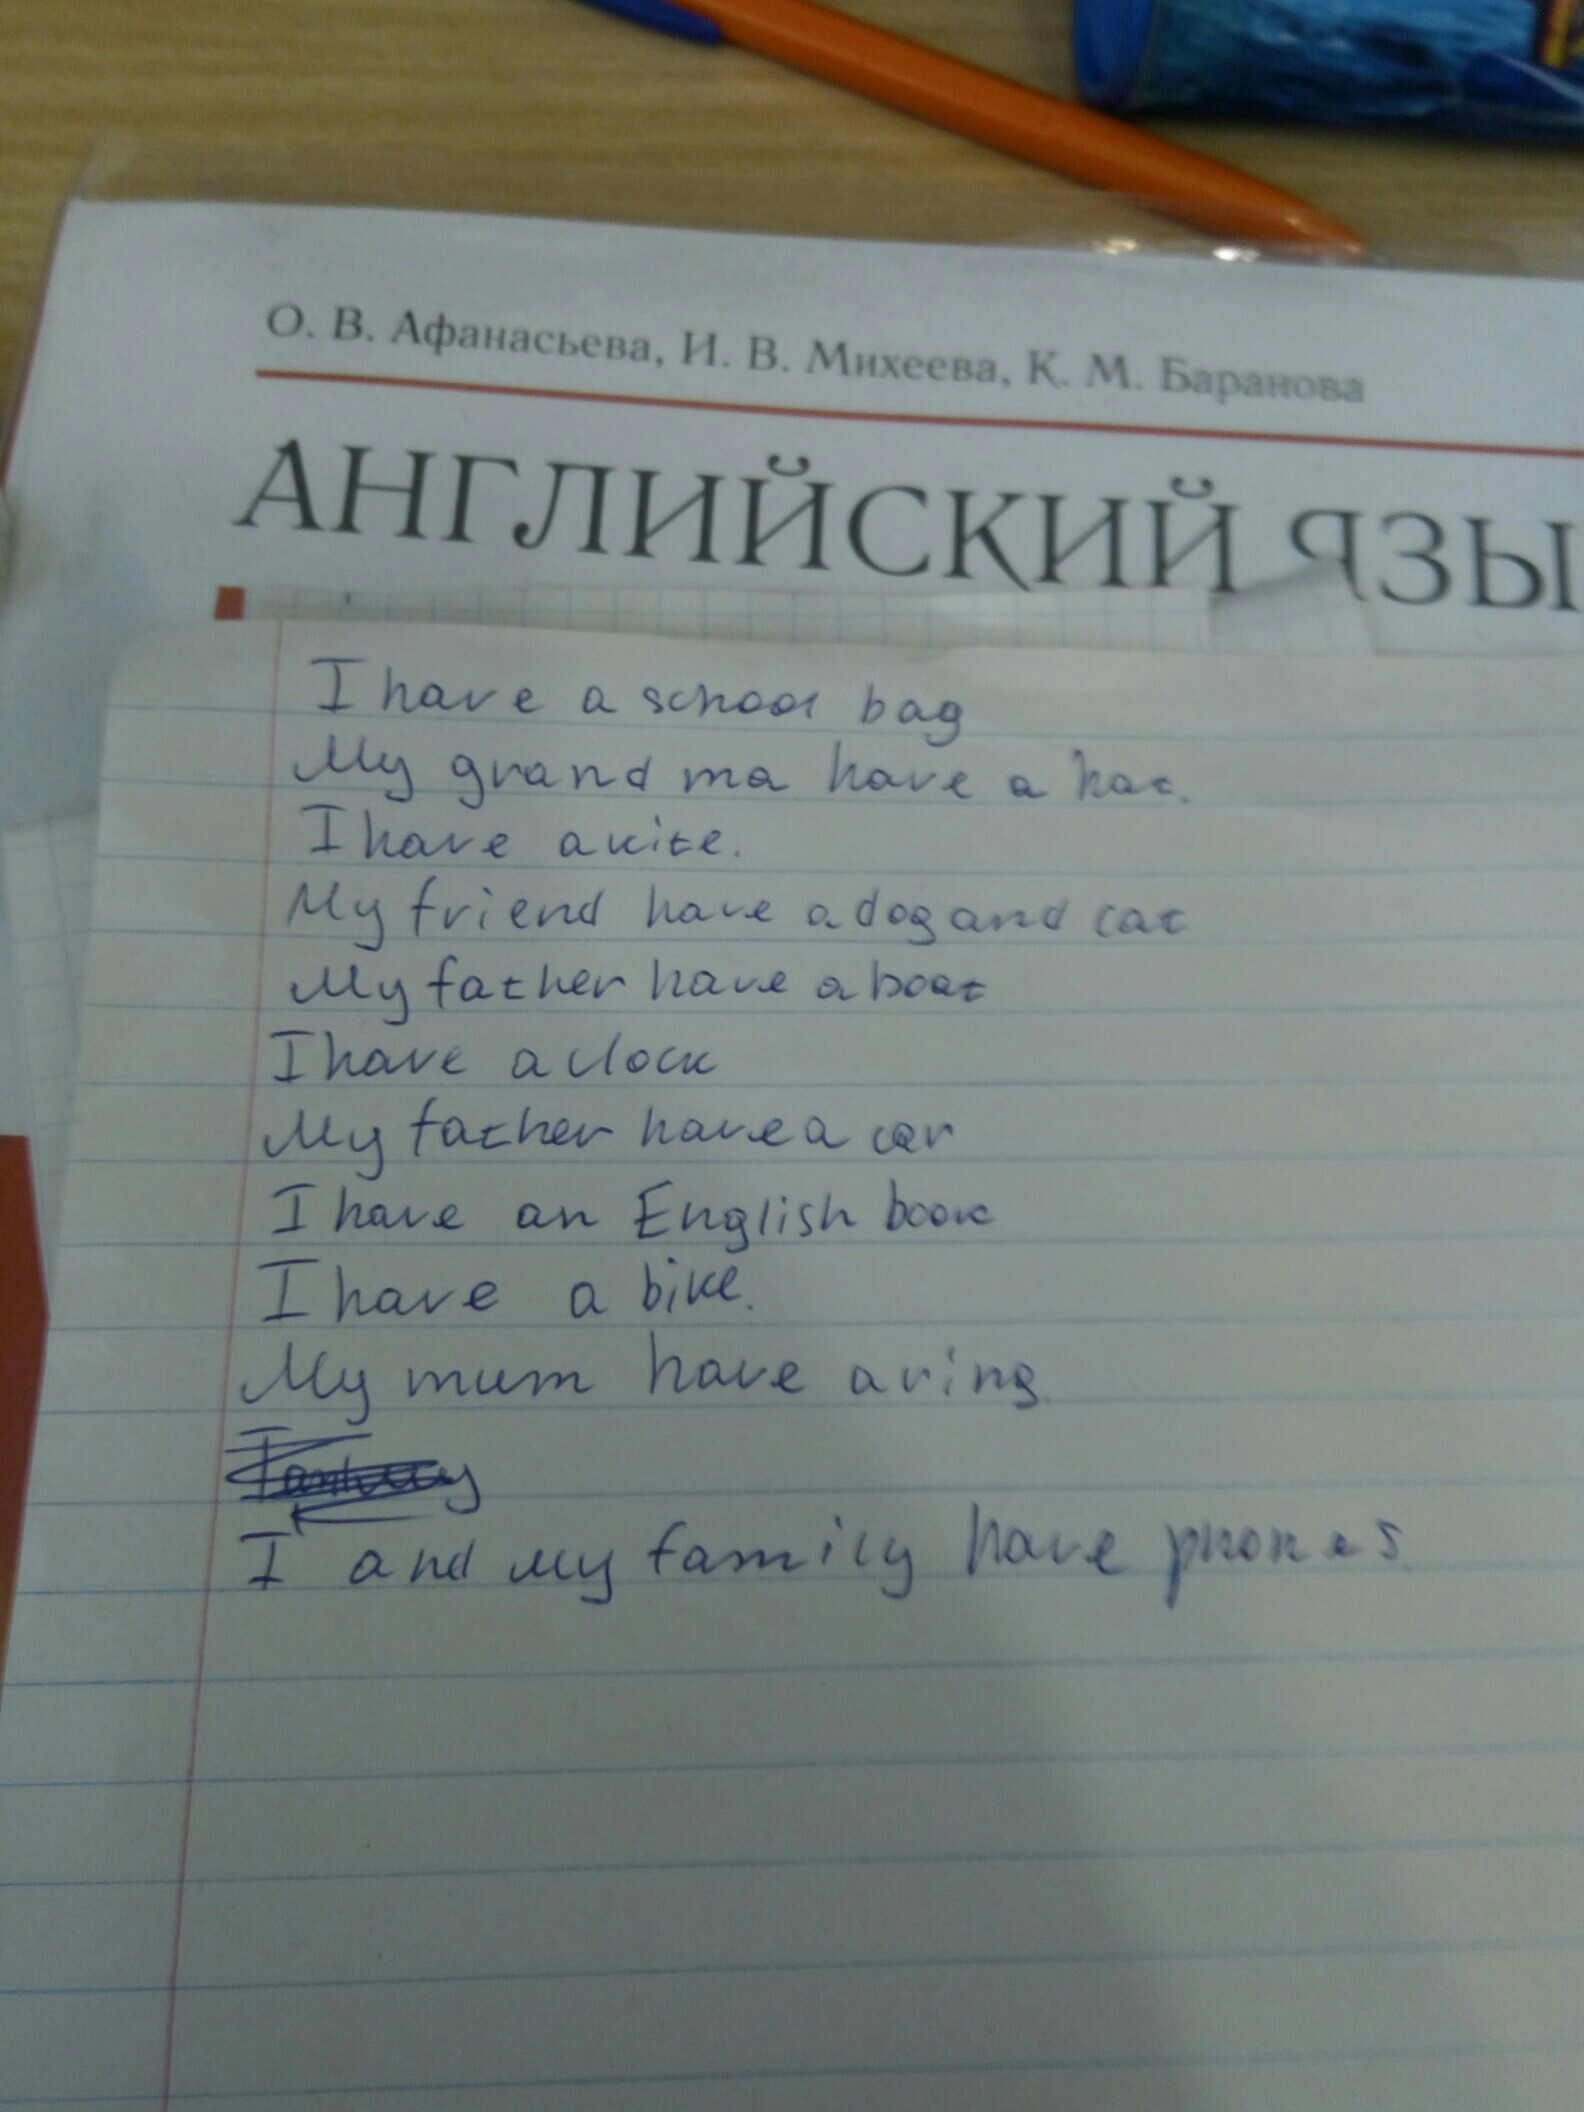 О. В. Афанасьева, И. В. Михеева, К. М. Баранова
АНГЛИЙСКИЙ ЯЗЫ
I have a school bag
My grand ma have a hat.
I have a kite.
My friend have a dog and cat
My father have a boat
I have a clock
My father have a car
I have an English book
I have a bike.
My mum have a ring.
I and my family have phones.